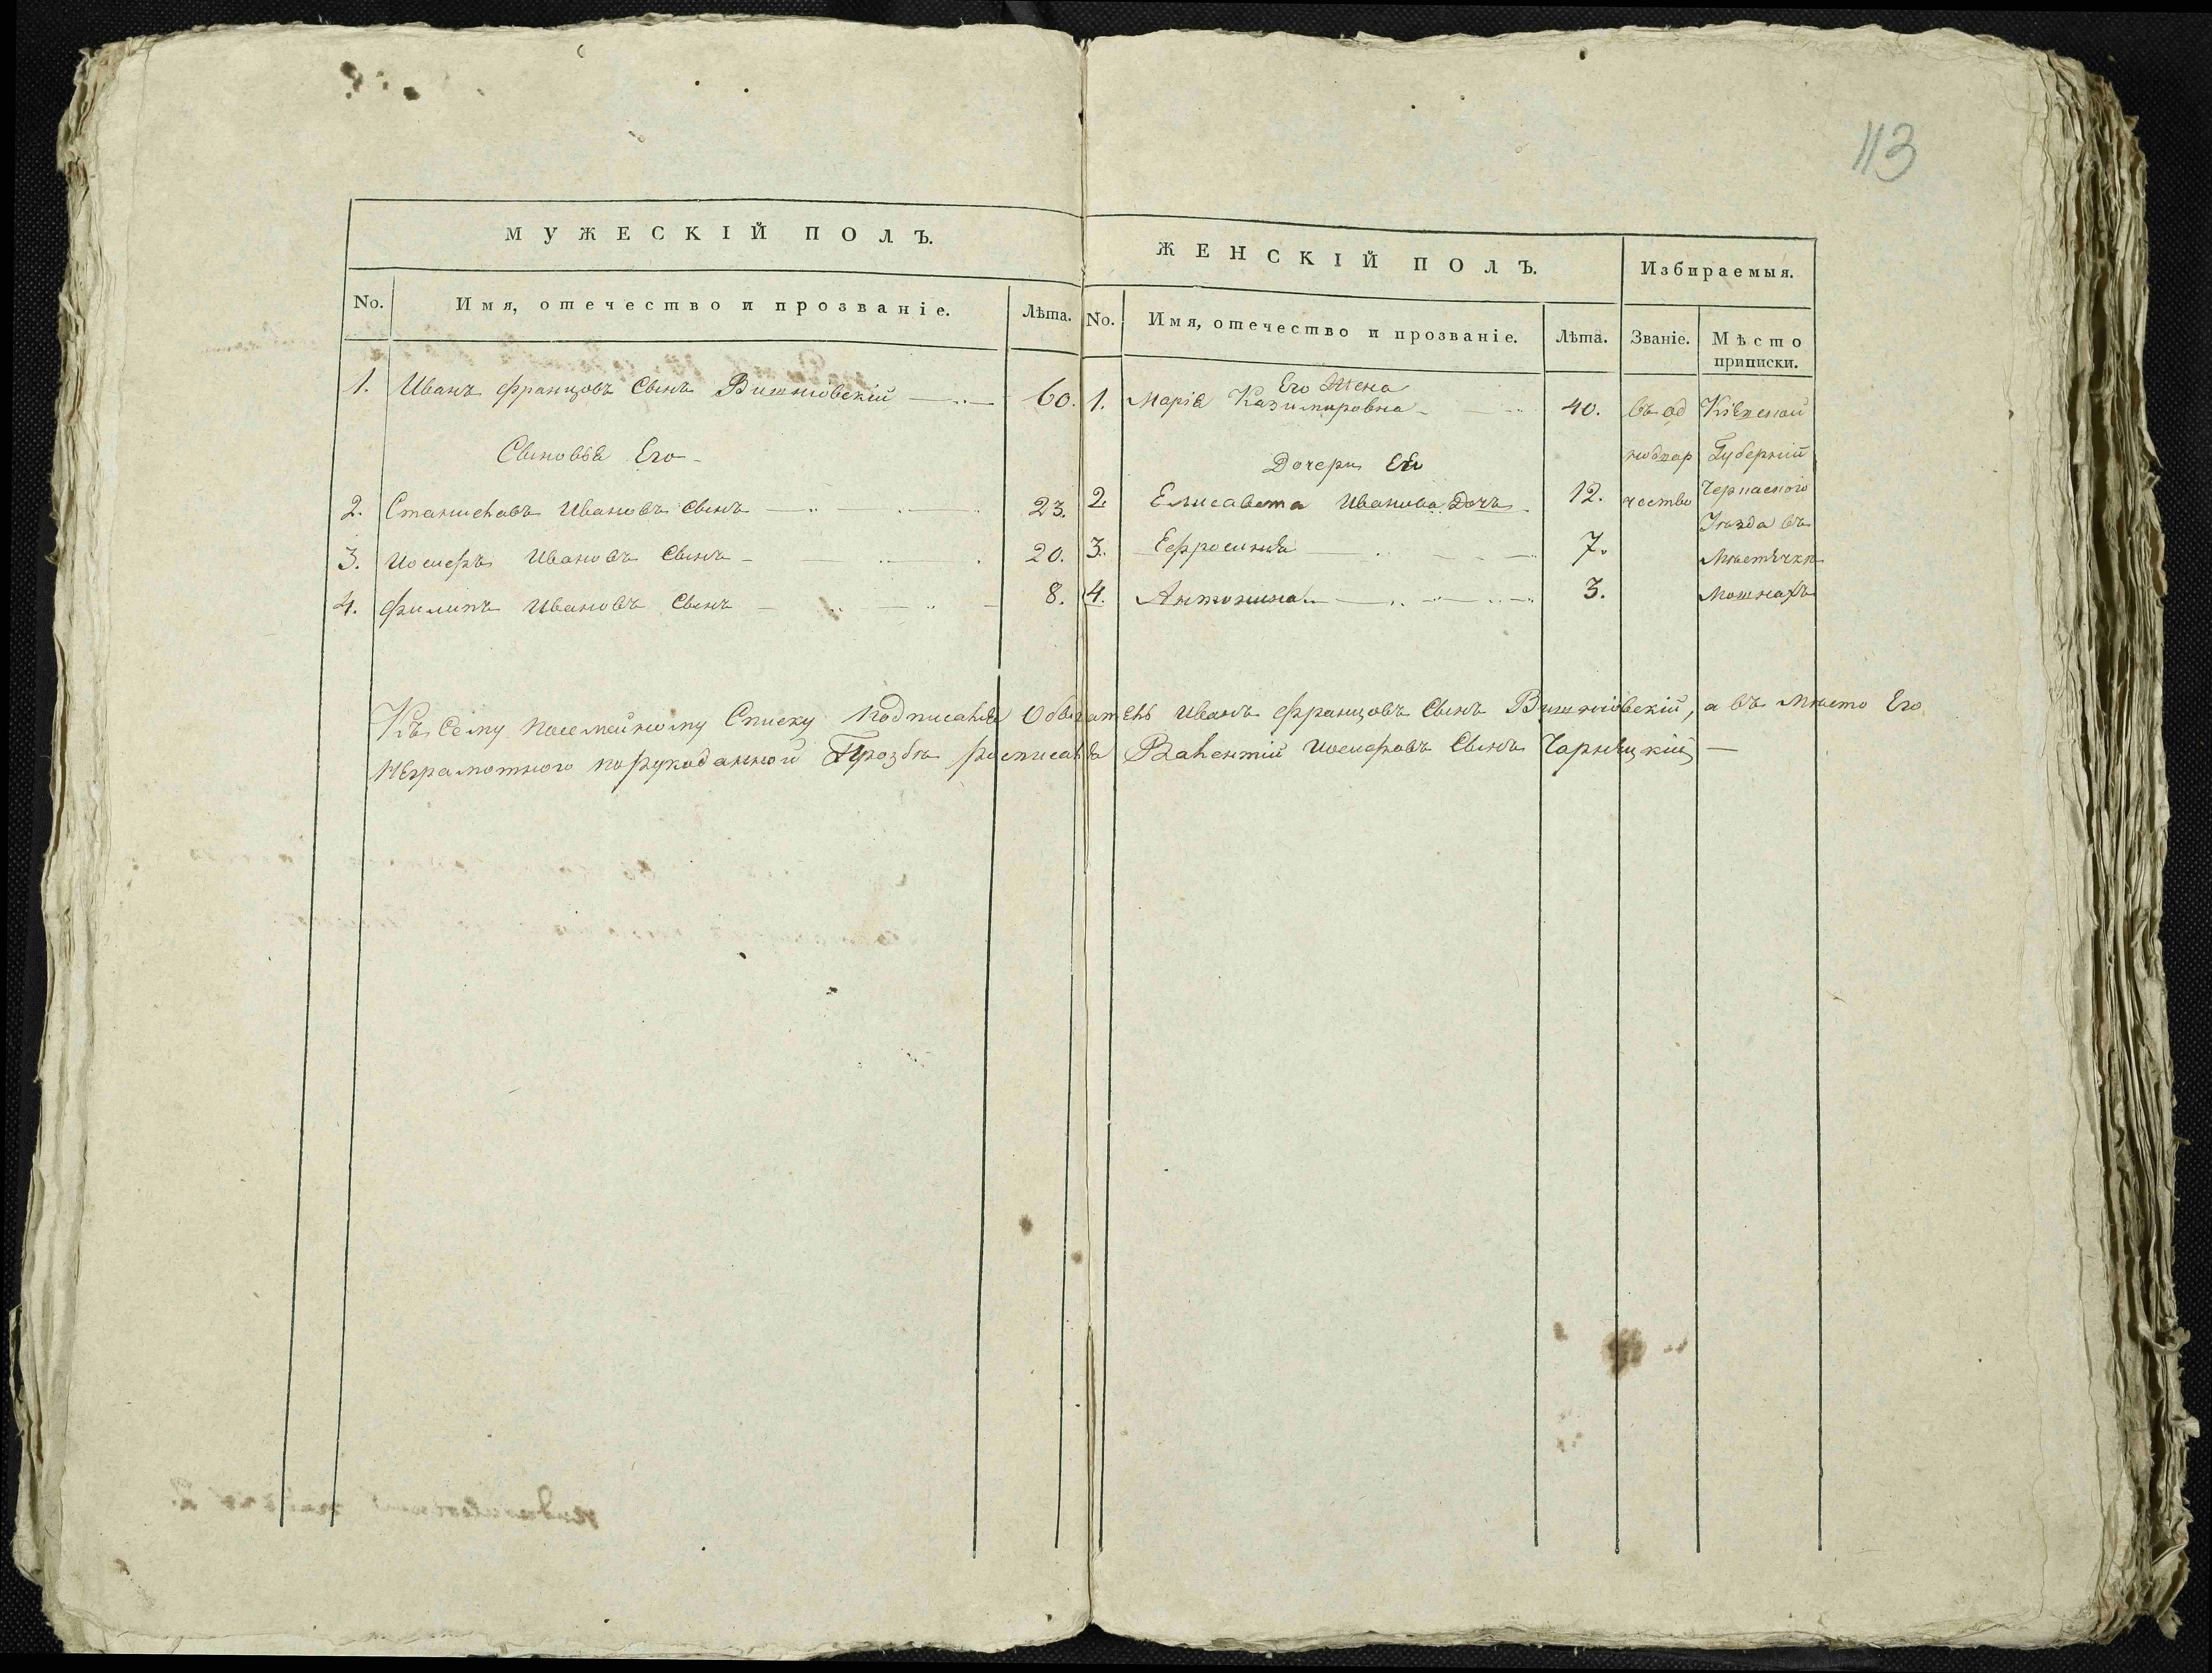 113
МУЖЕСКІЙ ПОЛЪ.
No. Имя, отечество и прозваніе. Лѣта.
1. Иванъ францовъ Сынъ Вишніовскій 60.
Сыновья Его
2. Станиславъ Ивановъ Сынъ 23.
3. Иосифъ Ивановъ Сынъ 20.
4. Филипъ Ивановъ Сынъ 8.
ЖЕНСКІЙ ПОЛЪ. Избираемыя.
No. Имя, отечество и прозваніе. Лѣта. Званіе. Мѣсто
приписки.
Его Жена
1. Марія Казимировна 40. въ од Кіевской
Дочери Его нодвор Губерніи
2. Елисавета Иванова Дочь 12. чество Черкаского
Уѣзда въ
3. Ефросинія 7. Мѣстѣчкѣ
4. Антонина 3. Мошнахъ
Къ Сему посемейному Списку подписался Обыватель Иванъ францовъ Сынъ Вишніовскій, а въ мѣсто Его
неграмотного порукоданной Прозбѣ росписался Валентій Иосифовъ Сынъ Чарнѣцкій